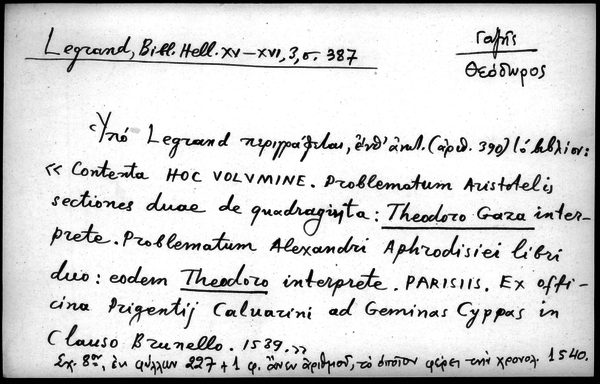 Legrand, Bibl. Hell. XV–XVI, 3, σ. 387
Γαζῆς
Θεόδωρος
Ὑπό Legrand περιγράφεται, ἔνθ' ἀνωτ. (ἀριθ. 390) τό βιβλίον:
« Contenta HOC VOLVMINE. Problematum Aristotelis
sectiones duae de quadraginta: Theodoro Gaza inter–
prete. Problematum Alexandri Aphrodisiei libri
duo: eodem Theodoro interprete. PARISIIS. Ex offi–
cina Prigentij Caluarini ad Geminas Cyppas in
Clauso Brunello. 1539. »
Σχ. 8ον, ἐκ φύλλων 227 + 1 φ. ἄνευ ἀριθμοῦ, τό ὁποῖον φέρει τήν χρονολ. 1540.